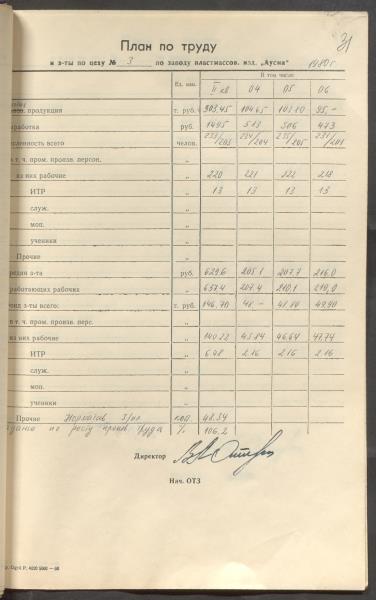 31
План по труду
и з-ты по цеху № 3 по заводу пластмассов. изд. „Аусма" 1980г.
Ед. изм. В том числе
II кв 04 05 06
продукция т. руб. 303.45 104.65 103.80 95,-
руб. 1495 513 506 473
всего челов. 233/205 234/204 235/205 231/201
в т. ч. пром. произв. персон. „
из них рабочие „ 220 221 222 218
ИТР „ 13 13 13 13
служ. „
моп. „
ученики „
Прочие „
з-та руб. 629.6 205.1 207.7 216.0
работающих рабочих „ 637.4 207.4 210.1 219,0
з-ты всего: т. руб. 146.70 48.- 48.80 49.90
в т. ч. пром. произв. перс. „
из них рабочие „ 140.22 45.84 46.64 47.74
ИТР „ 6.48 2.16 2.16 2.16
служ. „
моп. „
ученики „
Прочие Норматив з/пл коп 48.34
по росту произв. труда % 106.2
Директор
Нач. ОТЗ